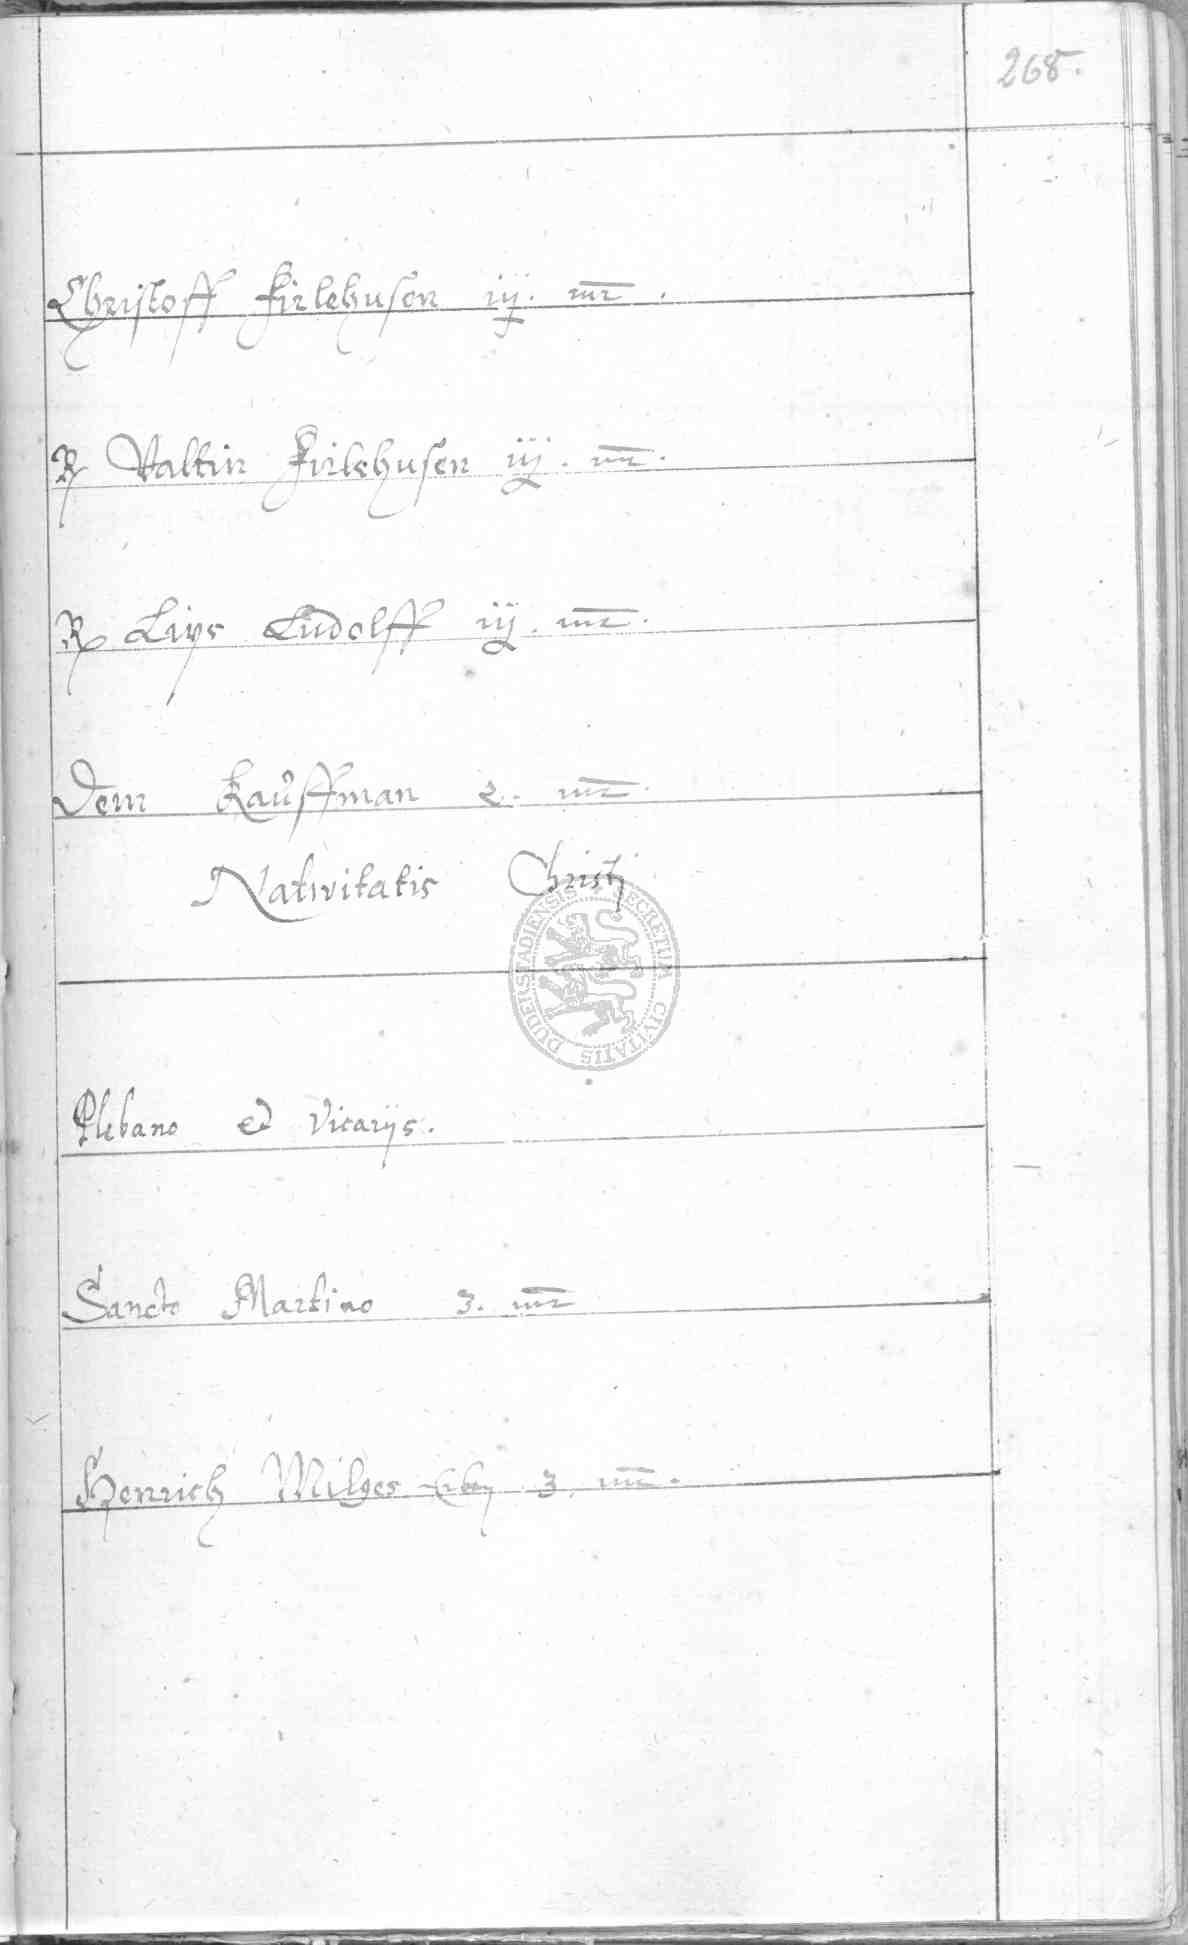 268.
Christoff Kirlehusen iij. mr.
R Valtin Kirlehusen iij. mr.
R Lips Ludolff iij. mr.
Dem Kauffman 2. mr.
Nativitatis Christi
SECRETUM CIVITATIS DUDERSTADIENSIS
Plebano et Vicarijs.
Sancto Martino 3. mr
Henrich Milges Erben 3. mr.